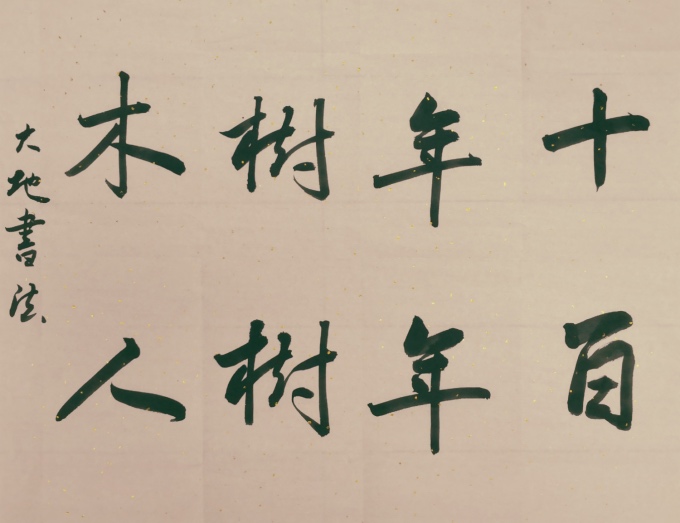 十年樹木
百年樹人
大地書法